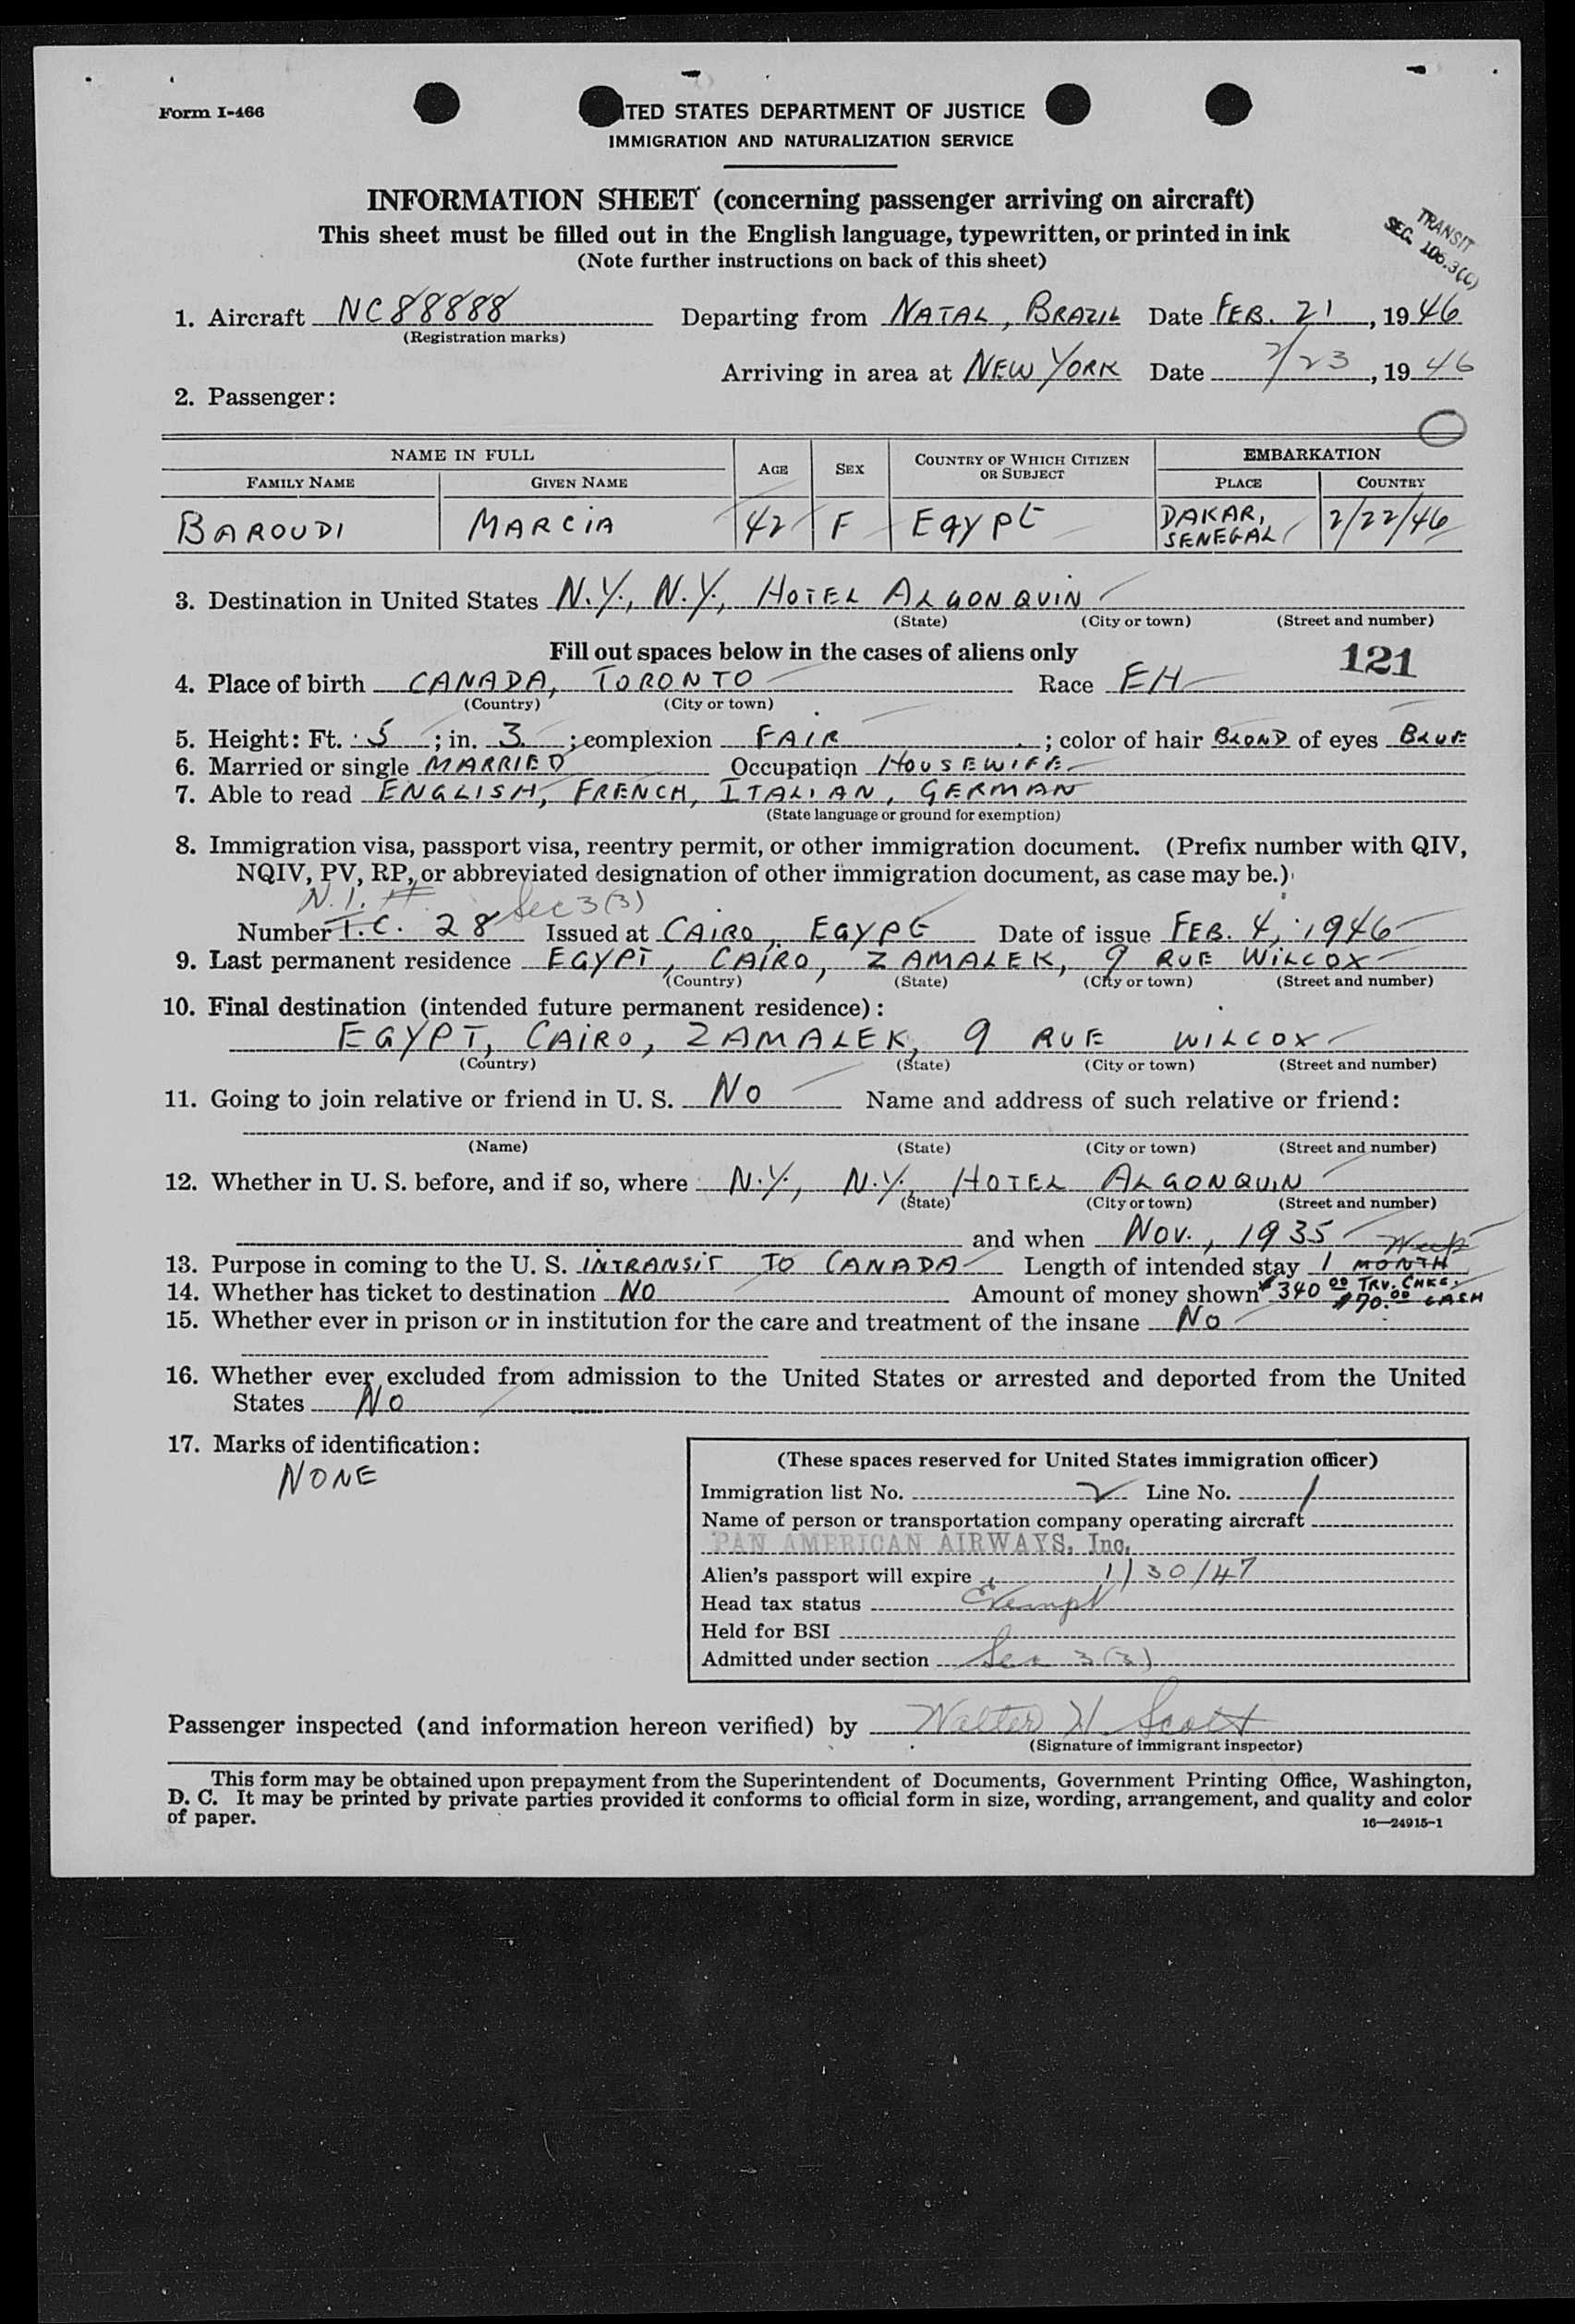 Form I-466
ITED STATES DEPARTMENT OF JUSTICE
IMMIGRATION AND NATURALIZATION SERVICE
INFORMATION SHEET (concerning passenger arriving on aircraft)
This sheet must be filled out in the English language, typewritten, or printed in ink
(Note further instructions on back of this sheet)
TRANSIT
SEC. 106.3(C)
1. Aircraft NC88888 Departing from NATAL, BRAZIL Date FEB. 21, 1946
(Registration marks)
Arriving in area at NEW YORK Date 2/23, 1946
2. Passenger:
NAME IN FULL AGE SEX COUNTRY OF WHICH CITIZEN OR SUBJECT EMBARKATION
FAMILY NAME GIVEN NAME PLACE COUNTRY
BAROUDI MARCIA 42 F EGYPT DAKAR, SENEGAL 2/22/46
3. Destination in United States N.Y., N.Y., HOTEL ALGONQUIN
(State) (City or town) (Street and number)
Fill out spaces below in the cases of aliens only
121
4. Place of birth CANADA, TORONTO Race EH
(Country) (City or town)
5. Height: Ft. 5; in. 3; complexion FAIR; color of hair BLOND of eyes BLUE
6. Married or single MARRIED Occupation HOUSEWIFE
7. Able to read ENGLISH, FRENCH, ITALIAN, GERMAN
(State language or ground for exemption)
8. Immigration visa, passport visa, reentry permit, or other immigration document. (Prefix number with QIV,
NQIV, PV, RP, or abbreviated designation of other immigration document, as case may be.)
N.I. # Sec 3(3)
Number T.C. 28 Issued at CAIRO, EGYPT Date of issue FEB. 4, 1946
9. Last permanent residence EGYPT, CAIRO, ZAMALEK, 9 RUE WILCOX
(Country) (State) (City or town) (Street and number)
10. Final destination (intended future permanent residence):
EGYPT, CAIRO, ZAMALEK, 9 RUE WILCOX
(Country) (State) (City or town) (Street and number)
11. Going to join relative or friend in U. S. NO Name and address of such relative or friend:
(Name) (State) (City or town) (Street and number)
12. Whether in U. S. before, and if so, where N.Y., N.Y., HOTEL ALGONQUIN
(State) (City or town) (Street and number)
and when NOV., 1935
13. Purpose in coming to the U. S. INTRANSIT TO CANADA Length of intended stay 1 MONTH
14. Whether has ticket to destination NO Amount of money shown $340.00 TRV. CHKS. $70.00 CASH
15. Whether ever in prison or in institution for the care and treatment of the insane NO
16. Whether ever excluded from admission to the United States or arrested and deported from the United
States NO
17. Marks of identification:
NONE
(These spaces reserved for United States immigration officer)
Immigration list No. 2 Line No. 1
Name of person or transportation company operating aircraft
PAN AMERICAN AIRWAYS, Inc.
Alien's passport will expire 1/30/47
Head tax status Exempt
Held for BSI
Admitted under section Sec 3(3)
Passenger inspected (and information hereon verified) by Walter H Scott
(Signature of immigrant inspector)
This form may be obtained upon prepayment from the Superintendent of Documents, Government Printing Office, Washington,
D. C. It may be printed by private parties provided it conforms to official form in size, wording, arrangement, and quality and color
of paper.
16—24915-1